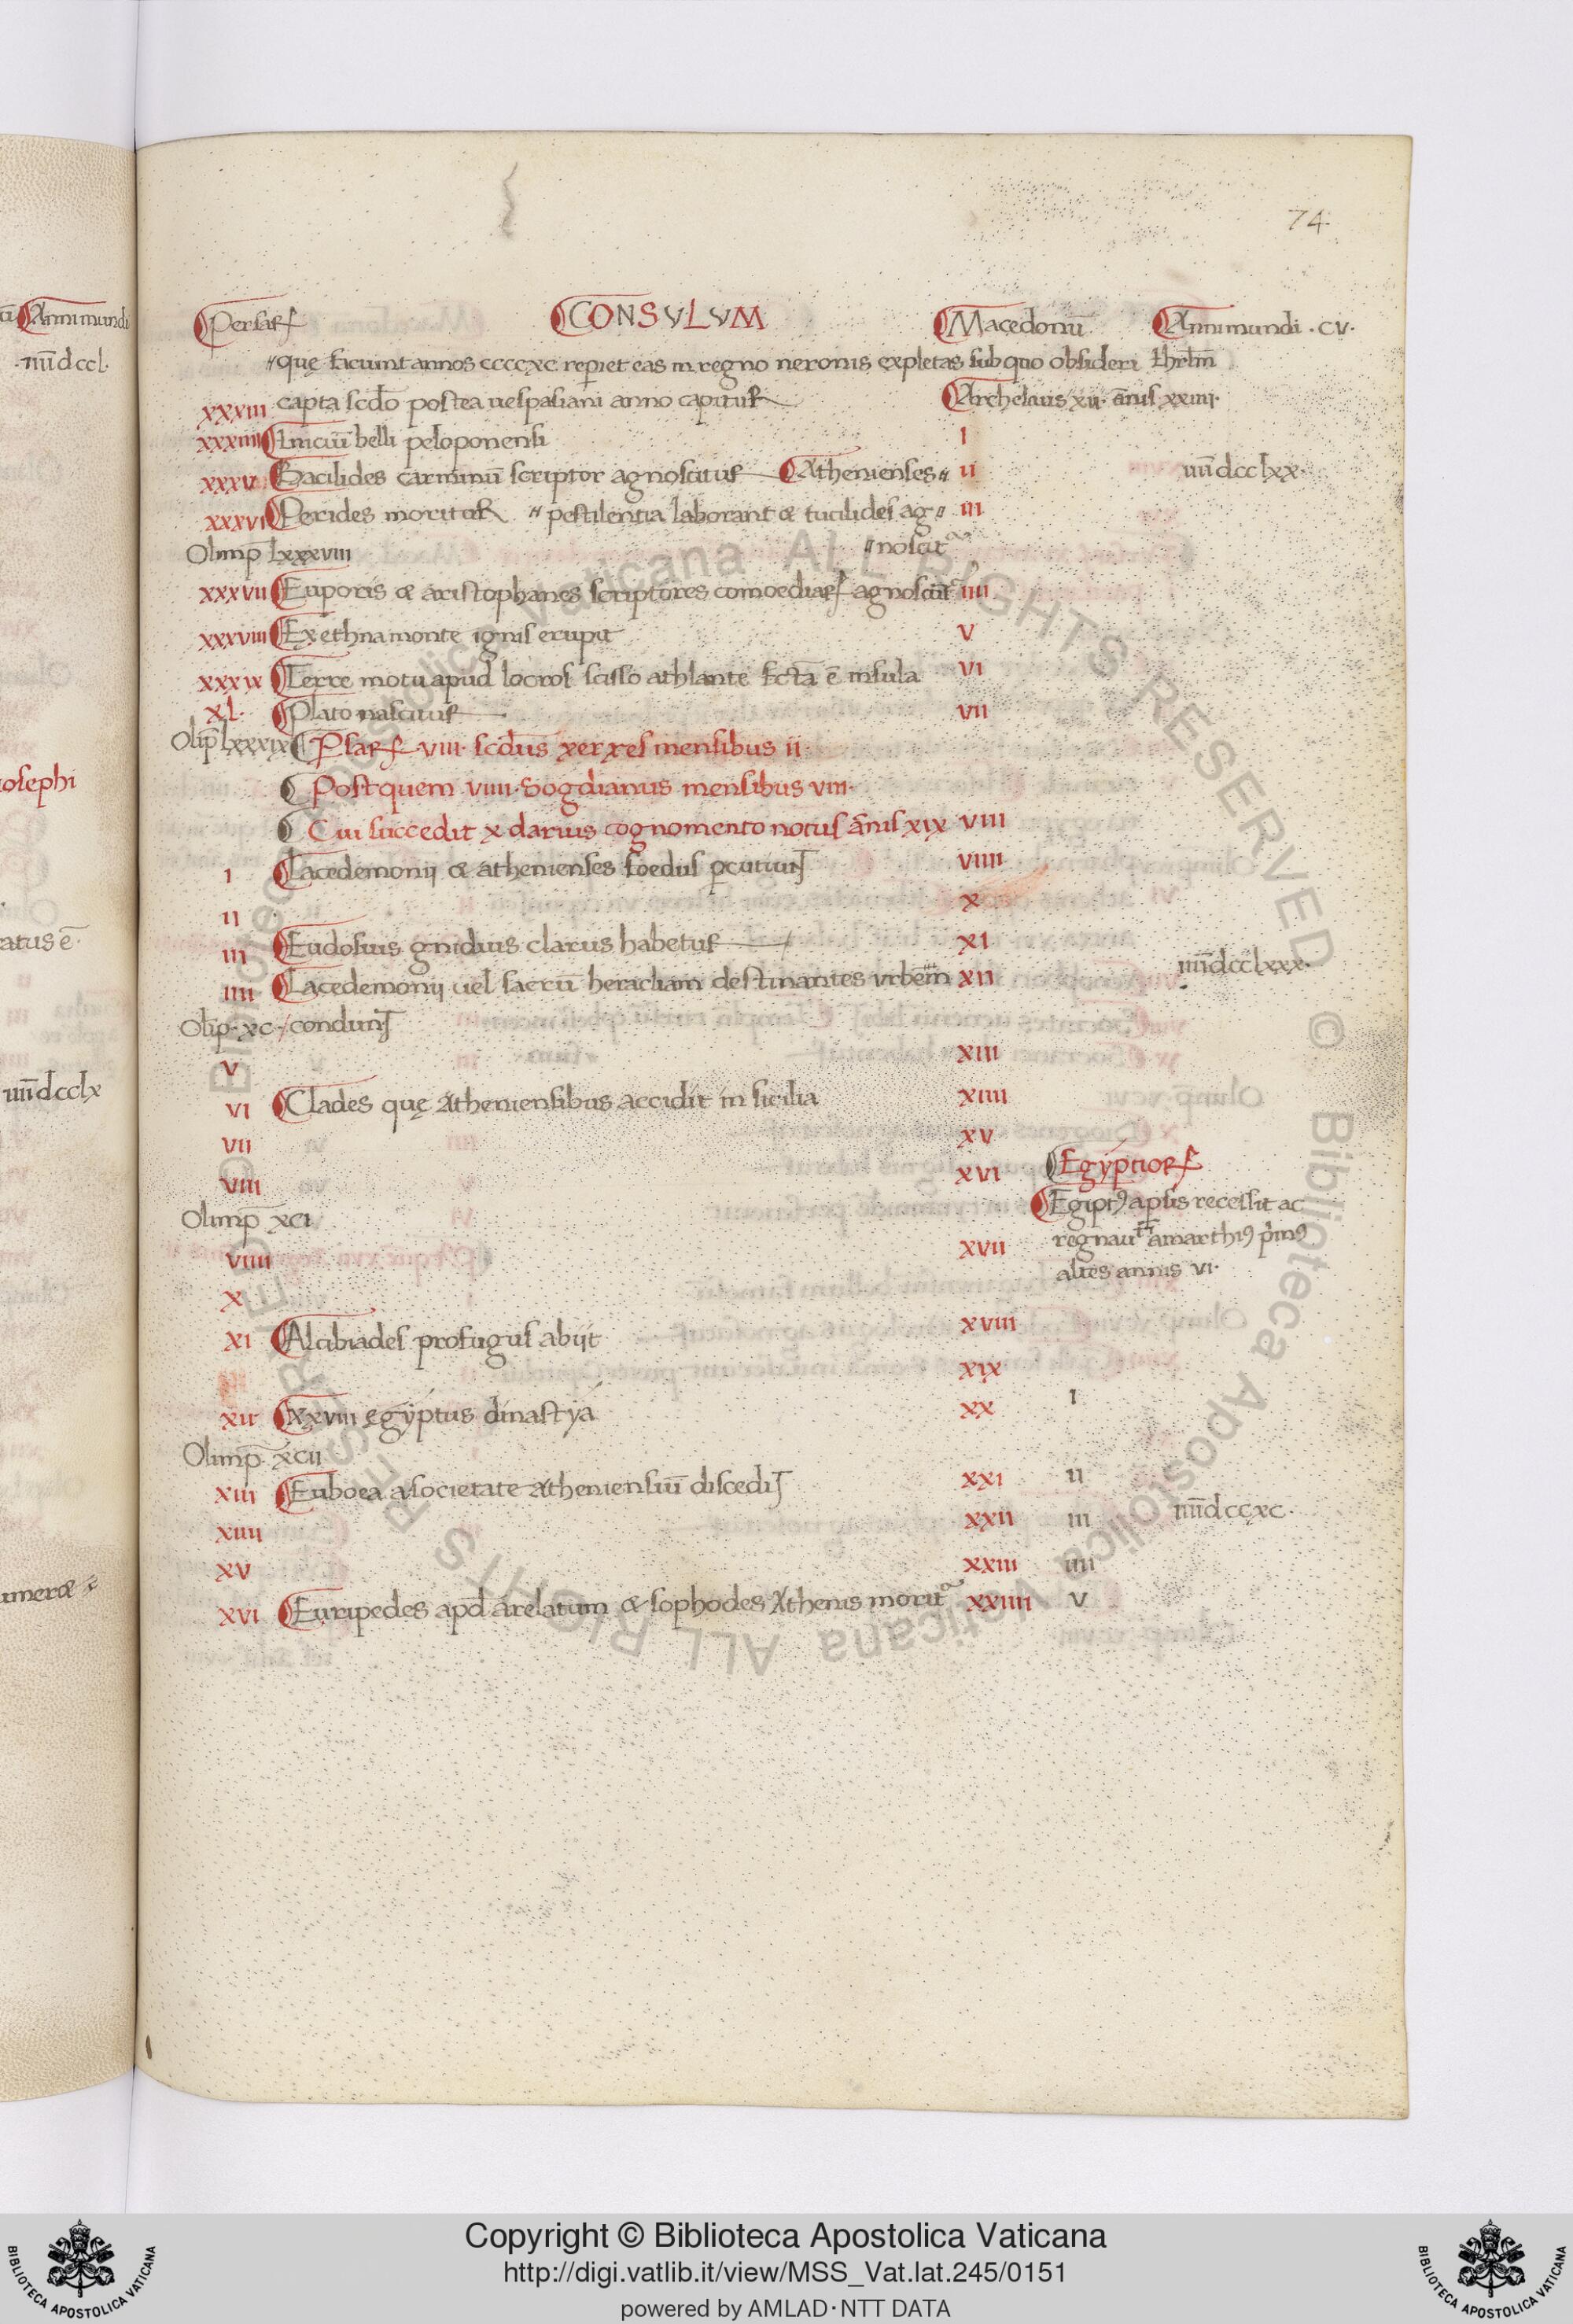 74
Persaꝝ CONSVLVM Macedonū Anni mundi · CV ·
〃quę faciunt annos ccccxc reperiet eas in regno neronis expletas sub quo obsideri
xxxiii capta scdo postea uespasiani anno capitur Archelaus xii · annis xxiiii ·
xxxiiii Iniciū belli peloponensi I
xxxv Bacilides carminū scriptor agnoscitur Athenienses〃 II iiiidcclxx ·
xxxvi Pericles moritur 〃pestilentia laborant & tucilides ag〃 III
Olimp̄ lxxxviii 〃noscit᷑
xxxvii Euporis & aristophanes scriptores comoediaꝝ agnoscūt᷑ IIII
xxxviii Ex ethna monte ignis erupit V
xxxix Terre motu apud locros scisso athlante fcta ē insula VI
xl · Plato nascitur VII
Olip̄ lxxxix Psaꝝ VIII · scdus xerxes mensibus II ·
Post quem VIIII · Sogdianus mensibus VIII ·
Cui succedit x darius cognomento notus annis xix VIII
I Lacedemonij & athenienses foedus ꝑcutiunt VIIII
II X
III Eudosius gnidius clarus habetur XI
IIII Lacedemonij uel sacrū heracliam destinantes urbem XII iiiidcclxxx ·
Olip̄ · xc · / condunt
V XIII
VI Clades quę Atheniensibus accidit in sicilia XIIII
VII XV
VIII XVI Egyptioꝝ
Olimp̄ xci Egiptꝰ apsis recessit ac
VIIII XVII regnauit amarthiꝰ primꝰ
altes annis VI ·
X
XI Alcibiades profugus abiit XVIII
XIX
XII XXVIII egyptus dinastya XX I
Olimp̄ · xcii
XIII Euboea a societate Atheniensiū discedit XXI II
XIIII XXII III iiiidccxc ·
XV XXIII IIII
XVI Euripedes apd arelatum & sophocles Athenis morit᷑ XXIIII V
Anni mundi
iiiidccl ·
iosephi
atus ē ·
iiiidcclx
Copyright © Biblioteca Apostolica Vaticana
http://digi.vatlib.it/view/MSS_Vat.lat.245/0151
powered by AMLAD · NTT DATA
BIBLIOTECA APOSTOLICA VATICANA
BIBLIOTECA APOSTOLICA VATICANA
© Biblioteca Apostolica Vaticana ALL RIGHTS RESERVED © Biblioteca Apostolica Vaticana ALL RIGHTS RESERVED